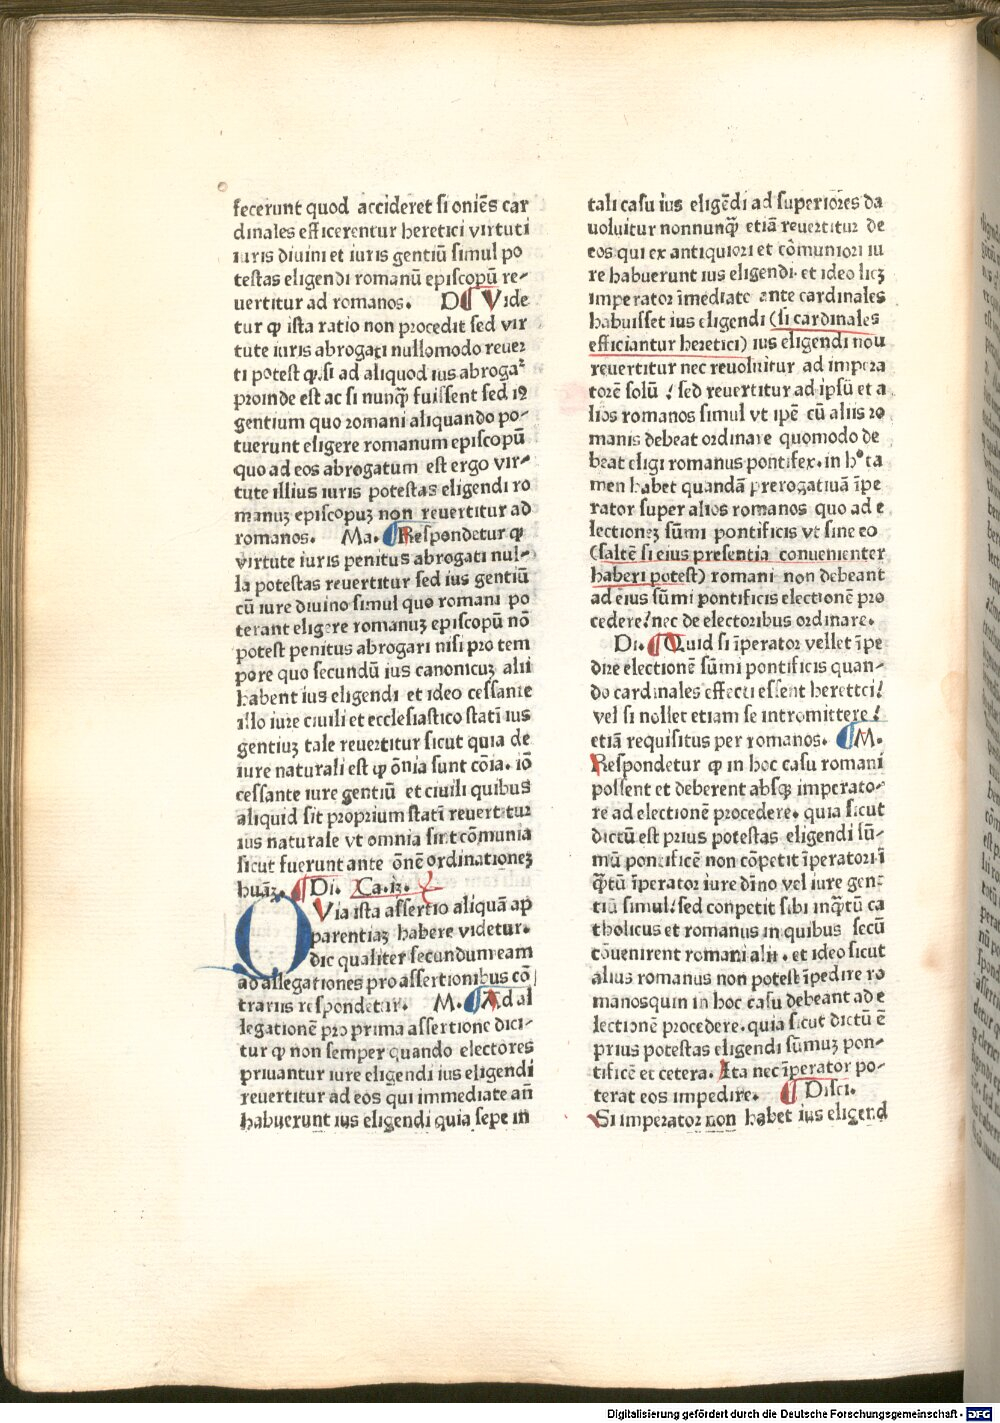 fecerunt quod accideret si oniēs car
dinales efficerentur heretici virtuti
iuris diuini et iuris gentiū simul po
testas eligendi romanū episcopū re-
uertitur ad romanos. D Vide
tur ꝙ ista ratio non procedit sed vir
tute iuris abrogati nullomodo reuer
ti potest ꝙ.si ad aliquod ius abrogaᵗ
proinde est ac si nunꝗ̄ fuissent sed iꝰ
gentium quo romani aliquando po-
tuerunt eligere romanum episcopū
quo ad eos abrogatum est ergo vir-
tute illius iuris potestas eligendi ro
manuꝫ episcopuꝫ non reuertitur ad
romanos. Ma. Respondetur ꝙ
virtute iuris penitus abrogati nul-
la potestas reuertitur sed ius gentiū
cū iure diuino simul quo romani po
terant eligere romanuꝫ episcopū nō
potest penitus abrogari nisi pro tem
pore quo secundū ius canonicuꝫ alii
habent ius eligendi et ideo cessante
illo iure ciuili et ecclesiastico statī ius
gentiuꝫ tale reuertitur sicut quia de
iure naturali est ꝙ ōnia sunt cōia. iō
cessante iure gentiū et ciuili quibus
aliquid sit proprium statī reuertitur
ius naturale vt omnia sint cōmunia
sicut fuerunt ante ōnē ordinationeꝫ
huāꝫ. Di. Ca.ix.
QVia ista assertio aliquā ap
parentiaꝫ habere videtur.
dic qualiter secundum eam
ad allegationes pro assertionibus cō
trariis respondetur. M. Ad al
legationē pro prima assertione dici-
tur ꝙ non semper quando electores
priuantur iure eligendi ius eligendi
reuertitur ad eos qui immediate añ
habuerunt ius eligendi quia sepe in
tali casu ius eligēdi ad superiores da
uoluitur nonnunꝗ̄ etiā reuertitur de
eos qui ex antiquiori et cōmuniori iu
re habuerunt ius eligendi. et ideo licꝫ
imperator īmediate ante cardinales
habuisset ius eligendi (si cardinales
efficiantur heretici) ius eligendi nou
reuertitur nec reuoluitur ad impera
torē solū / sed reuertitur ad ipsū et a
lios romanos simul vt ipē cū aliis ro
manis debeat ordinare quomodo de
beat eligi romanus pontifex. in hº ta
men habet quandā prerogatiuā īpe
rator super alios romanos quo ad e
lectioneꝫ sūmi pontificis vt sine eo
(saltē si eius presentia conuenienter
haberi potest) romani non debeant
ad eius sūmi pontificis electionē pro
cedere / nec de electoribus ordinare.
Di. Quid si īperator vellet īpe
dire electionē sūmi pontificis quan-
do cardinales effecti essent herettci /
vel si nollet etiam se intromittere /
etiā requisitus per romanos. M.
Respondetur ꝙ in hoc casu romani
possent et deberent absqꝫ imperato-
re ad electionē procedere. quia sicut
dictū est prius potestas eligendi sū-
mū pontificē non cōpetit īperatori ī
ꝗ̄tū īperator iure dīno vel iure gen-
tiū simul / sed conpetit sibi inꝗ̄tū ca
tholicus et romanus in quibus secū
cōuenirent romani alii. et ideo sicut
alius romanus non potest īpedire ro
manos quin in hoc casu debeant ad e
lectionē procedere. quia sicut dictū ē
prius potestas eligendi sūmuꝫ pon-
tificē et cetera. Ita nec īperator po-
terat eos impedire. Disci.
Si imperator non habet ius eligend
Digitalisierung gefördert durch die Deutsche Forschungsgemeinschaft - DFG